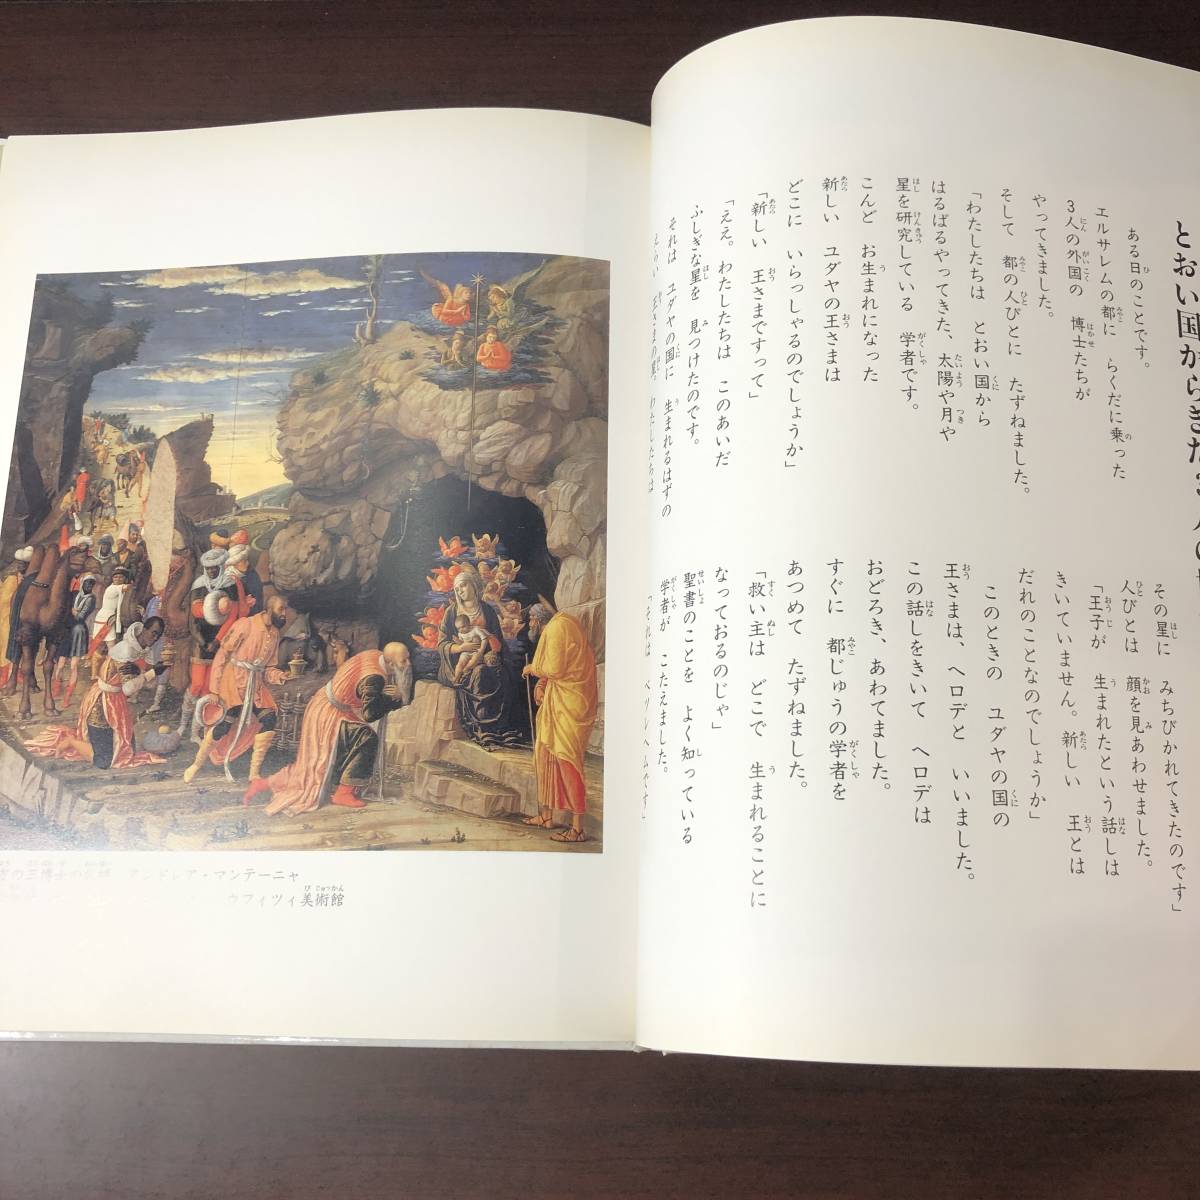 とおい国からきた
ある日のことです。
エルサレムの都に　らくだに乗った
3人の外国の　博士たちが
やってきました。
そして　都の人びとに　たずねました。
「わたしたちは　とおい国から
はるばるやってきた、太陽や月や
星を研究している　学者です。
こんど　お生まれになった
新しい　ユダヤの王さまは
どこに　いらっしゃるのでしょうか」
「新しい　王さまですって」
「ええ。わたしたちは　このあいだ
ふしぎな星を　見つけたのです。
それは　ユダヤの国に　生まれるはずの
えらい　王さまの星。わたしたちは
その星に　みちびかれてきたのです」
人びとは　顔を見あわせました。
「王子が　生まれたという話しは
きいていません。新しい　王とは
だれのことなのでしょうか」
このときの　ユダヤの国の
王さまは、ヘロデと　いいました。
この話しをきいて　ヘロデは
おどろき、あわてました。
すぐに　都じゅうの学者を
あつめて　たずねました。
「救い主は　どこで　生まれることに
なっておるのじゃ」
聖書のことを　よく知っている
学者が　こたえました。
「それは　ベツレヘムです」
の三博士の　アンドレア・マンテーニャ
ウフィツィ美術館